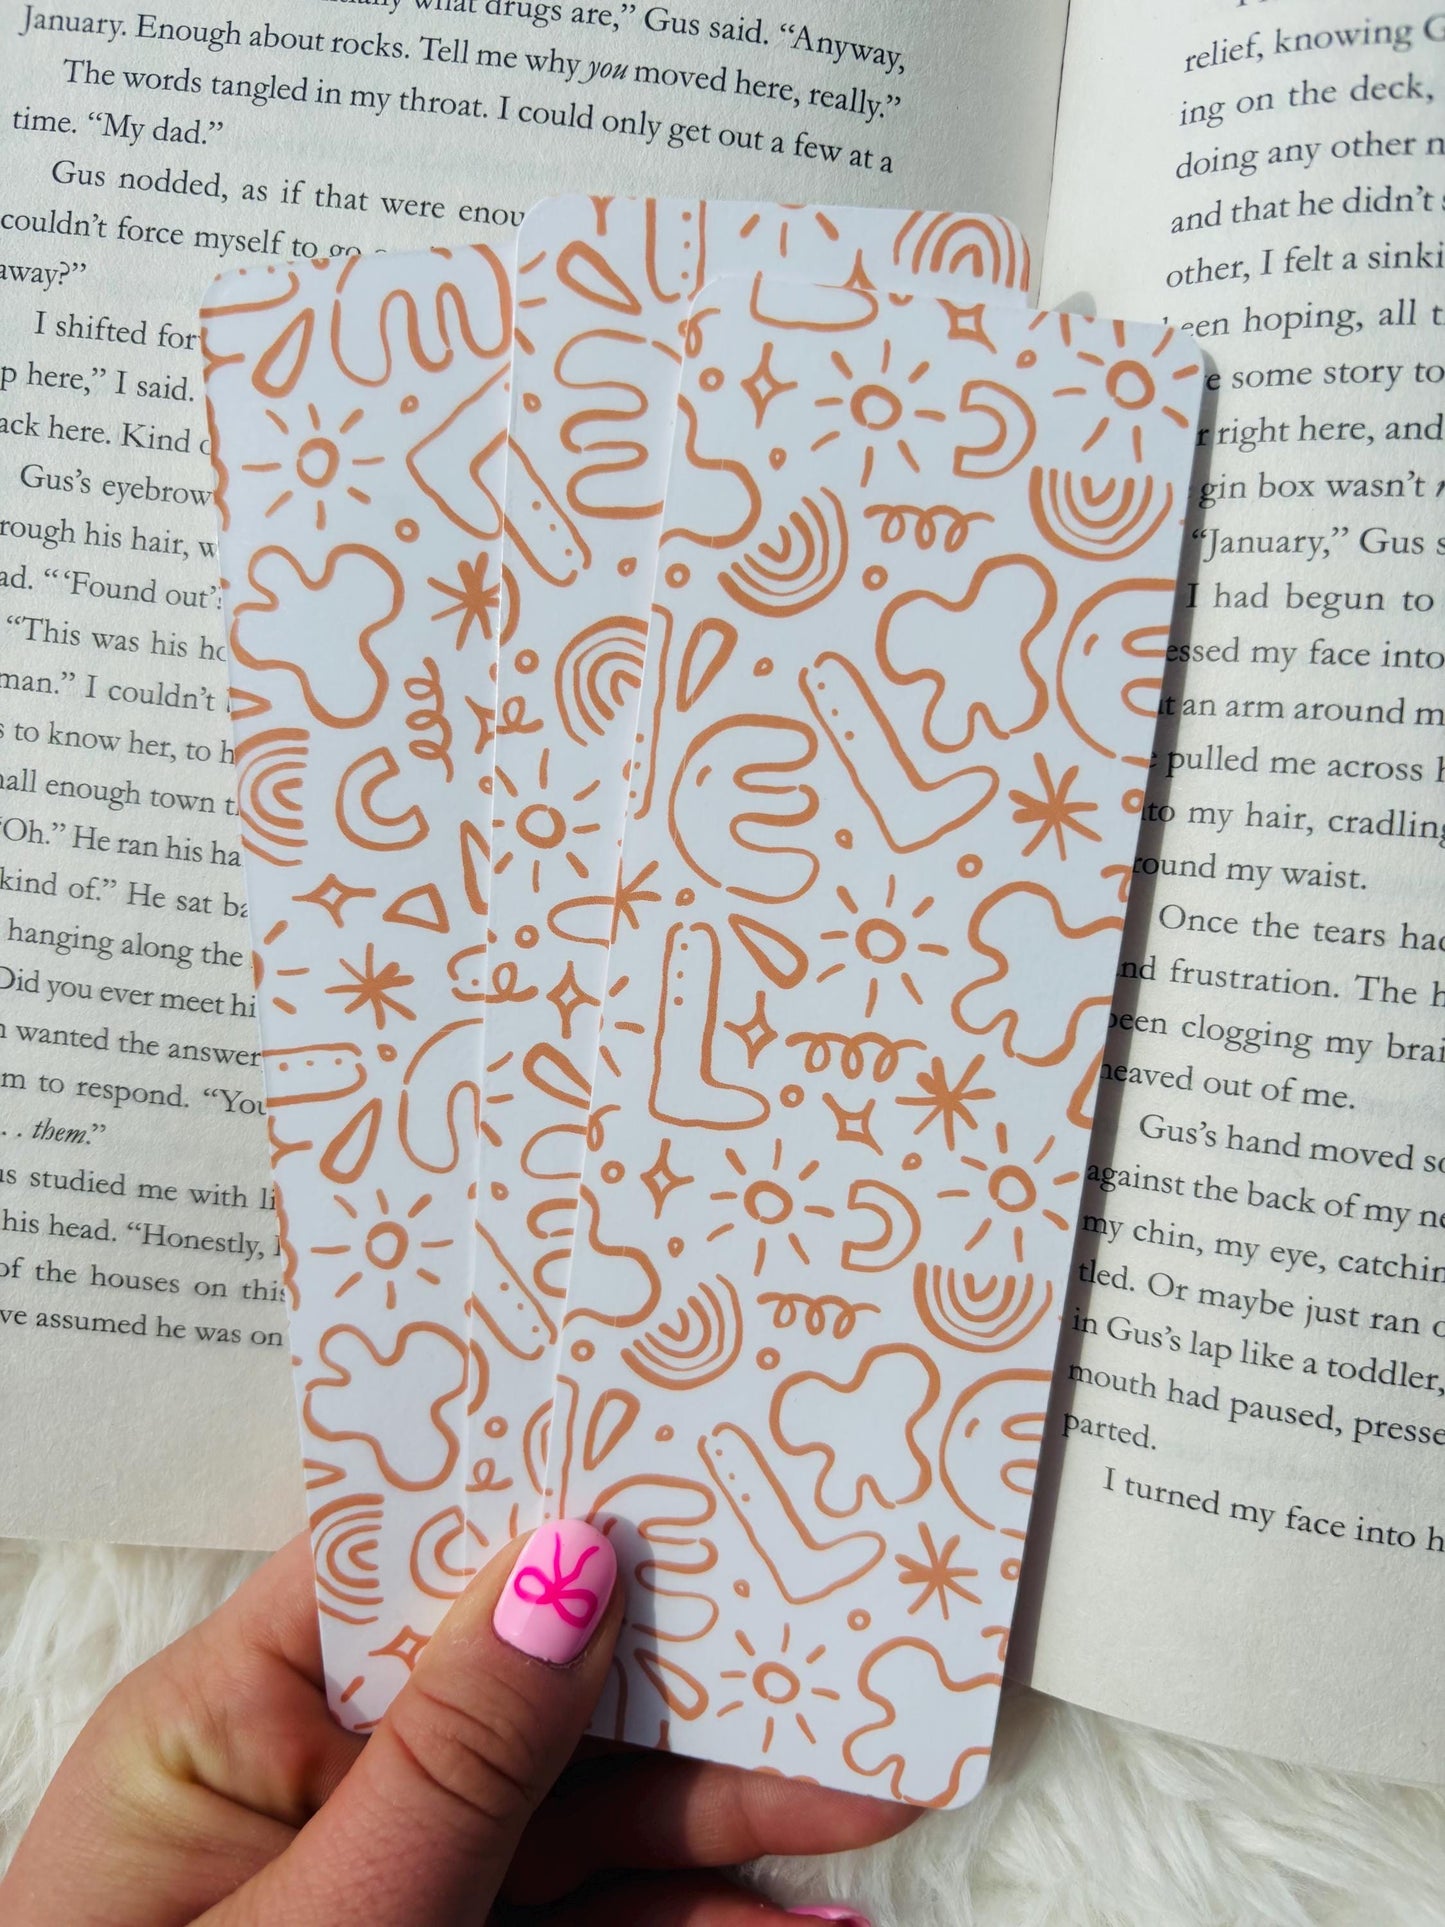 what drugs are,” Gus said. “Anyway,
January. Enough about rocks. Tell me why you moved here, really.”
The words tangled in my throat. I could only get out a few at a
time. “My dad.”
Gus nodded, as if that were enou
couldn’t force myself to go
away?”
I shifted for
p here,” I said.
ack here. Kind
Gus’s eyebrow
rough his hair, w
ad. “ ‘Found out’
“This was his ho
man.” I couldn’t
s to know her, to h
all enough town t
“Oh.” He ran his ha
kind of.” He sat ba
hanging along the
Did you ever meet hi
wanted the answer
m to respond. “You
. . them.”
us studied me with li
his head. “Honestly, I
of the houses on this
ve assumed he was on
relief, knowing G
ing on the deck,
doing any other n
and that he didn’t s
other, I felt a sinki
een hoping, all t
e some story to
r right here, and
gin box wasn’t
“January,” Gus s
I had begun to
essed my face into
t an arm around m
pulled me across h
to my hair, cradling
round my waist.
Once the tears had
nd frustration. The h
been clogging my brai
heaved out of me.
Gus’s hand moved so
against the back of my ne
my chin, my eye, catchin
tled. Or maybe just ran o
in Gus’s lap like a toddler,
mouth had paused, presse
parted.
I turned my face into h